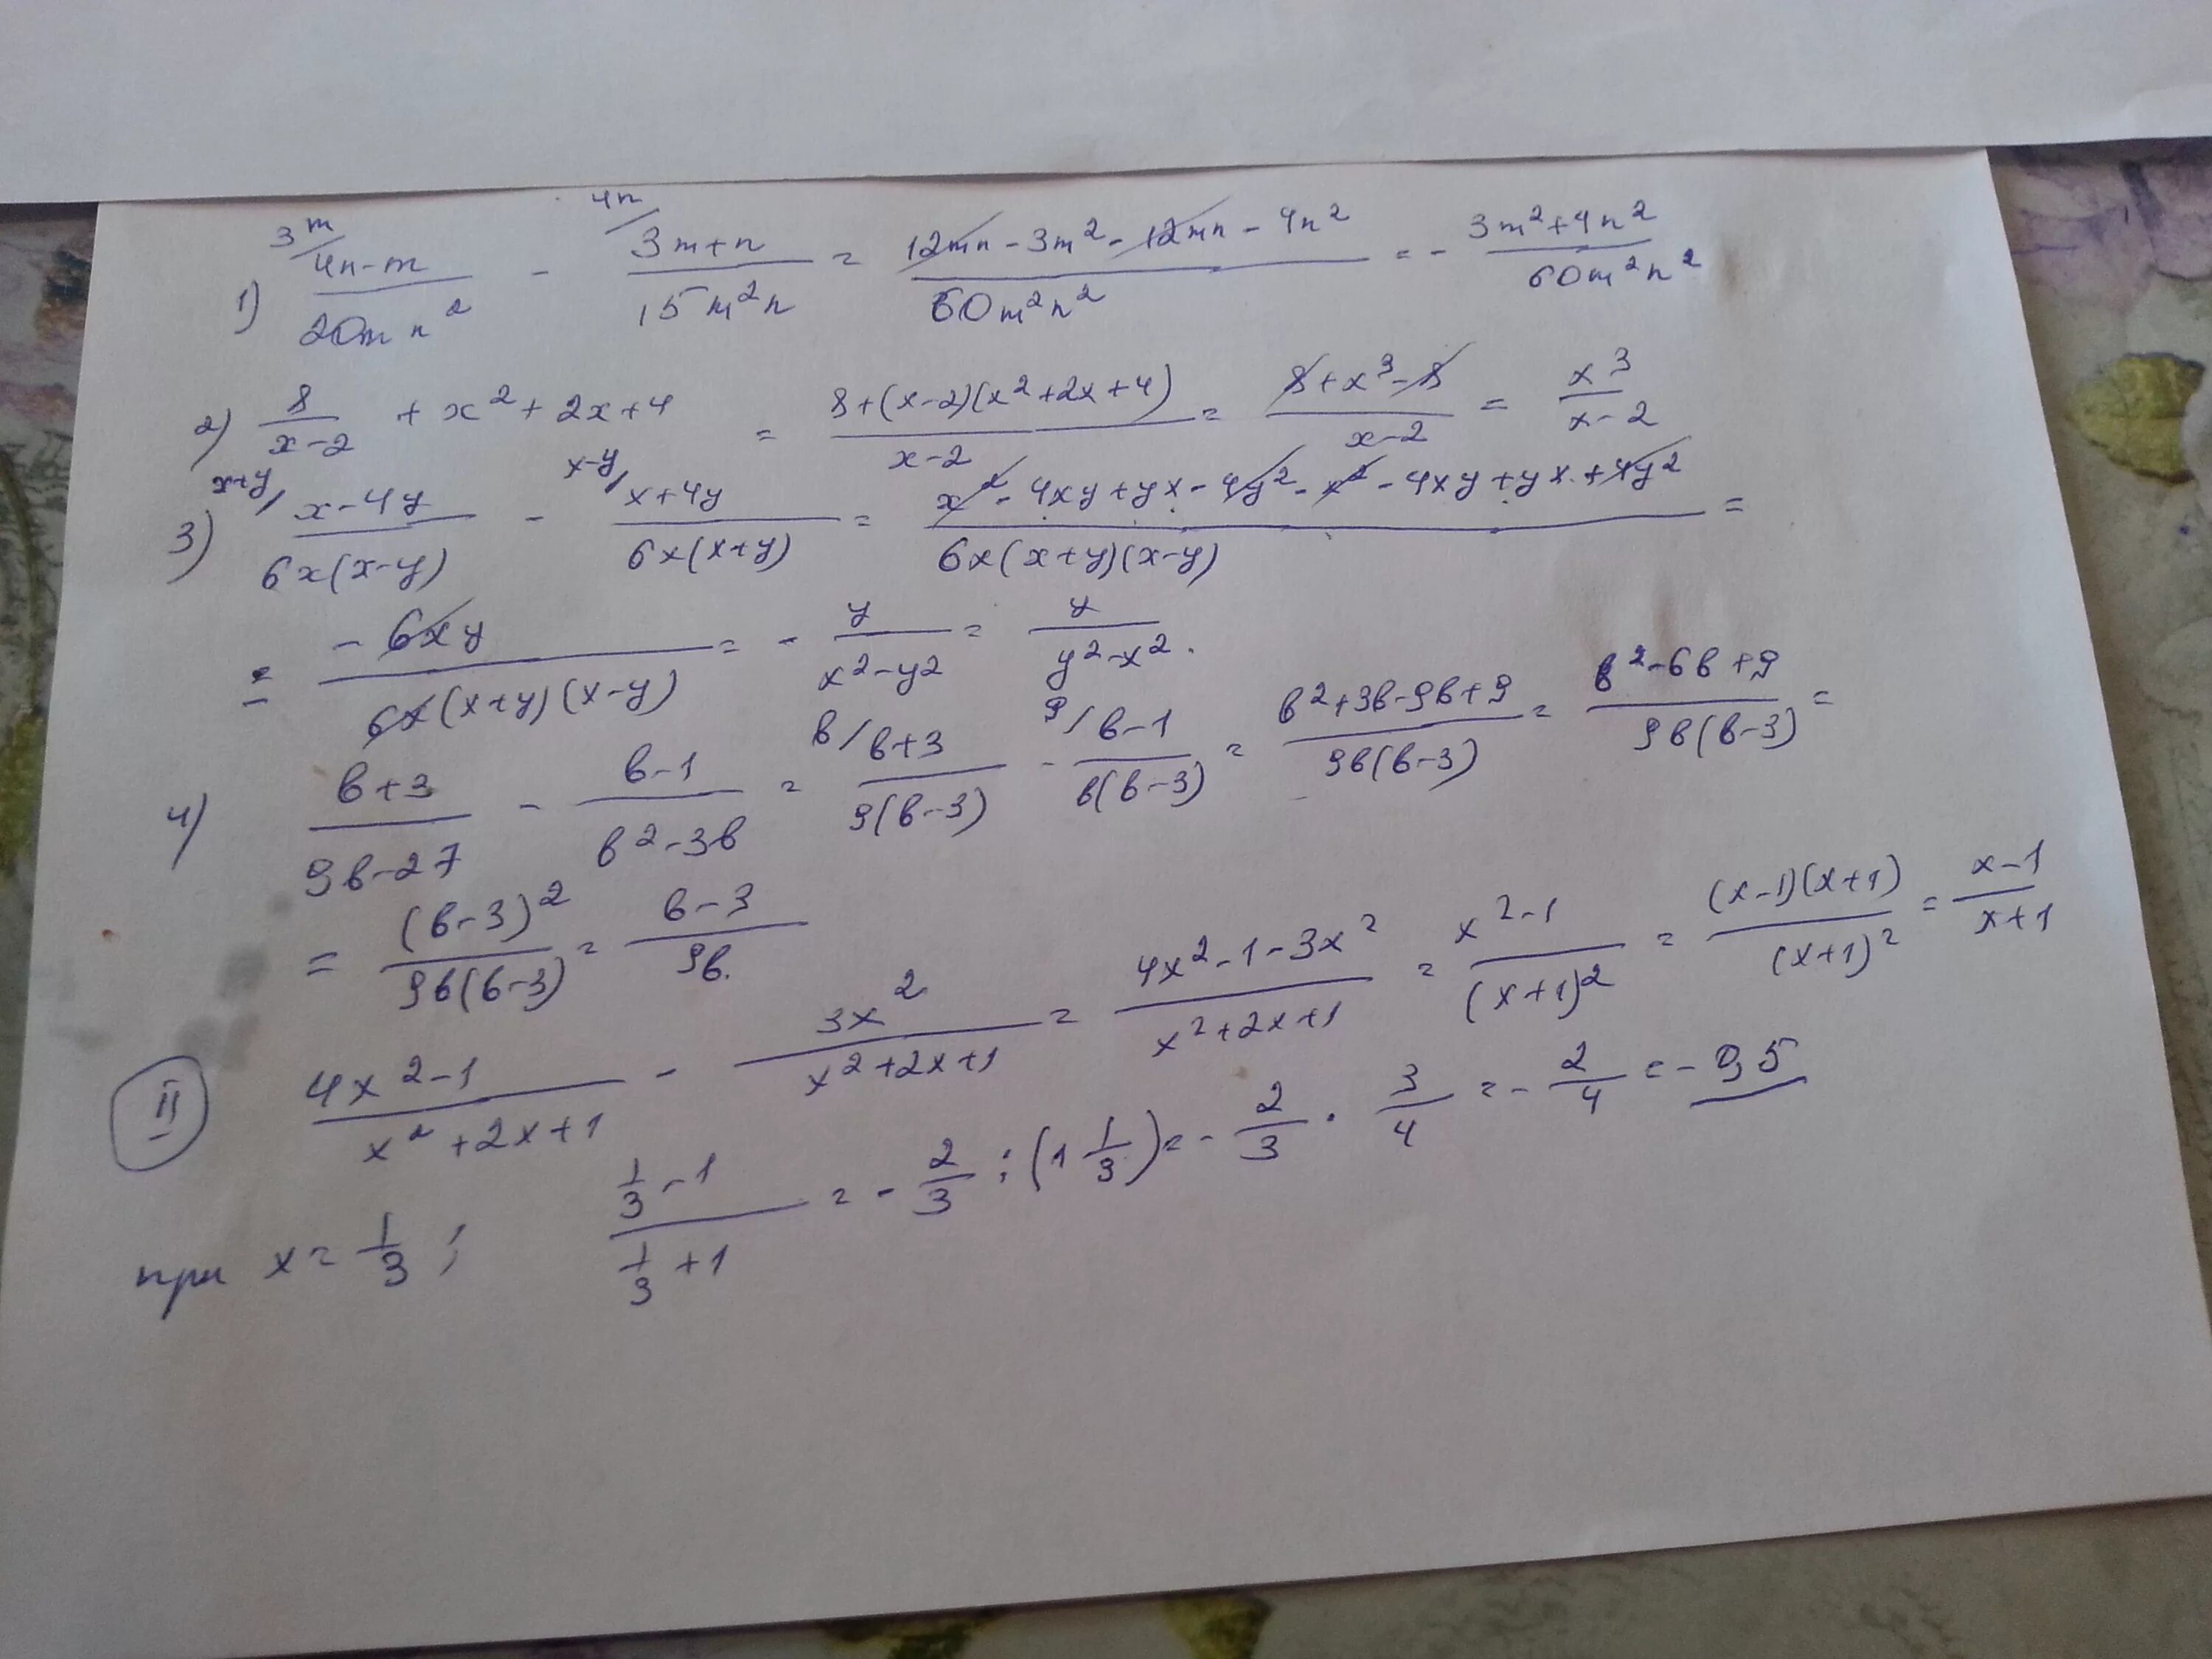 1) 3m/ (4n-m)/(20mn²) - 4n/ (3m+n)/(15m²n) = (12mn-3m²-12mn-4n²)/(60m²n²) = - (3m²+4n²)/(60m²n²)
2) 8/(x-2) + x²+2x+4 = (8+(x-2)(x²+2x+4))/(x-2) = (8+x³-8)/(x-2) = x³/(x-2)
3) x+y/ (x-4y)/(6x(x-y)) - x-y/ (x+4y)/(6x(x+y)) = (x²-4xy+yx-4y²-x²-4xy+yx+4y²)/(6x(x+y)(x-y)) =
= (-6xy)/(6x(x+y)(x-y)) = - y/(x²-y2) = y/(y²-x²).
4) (в+3)/(9в-27) - (в-1)/(в²-3в) = в/ (в+3)/(9(в-3)) - 9/ (в-1)/(в(в-3)) = (в²+3в-9в+9)/(9в(в-3)) = (в²-6в+9)/(9в(в-3)) =
= (в-3)²/(9в(в-3)) = (в-3)/(9в).
II (4x²-1)/(x²+2x+1) - 3x²/(x²+2x+1) = (4x²-1-3x²)/(x²+2x+1) = (x²-1)/(x+1)² = (x-1)(x+1)/(x+1)² = (x-1)/(x+1)
при x=1/3; (1/3-1)/(1/3+1) = - 2/3 : (1 1/3) = - 2/3 · 3/4 = - 2/4 = -0,5